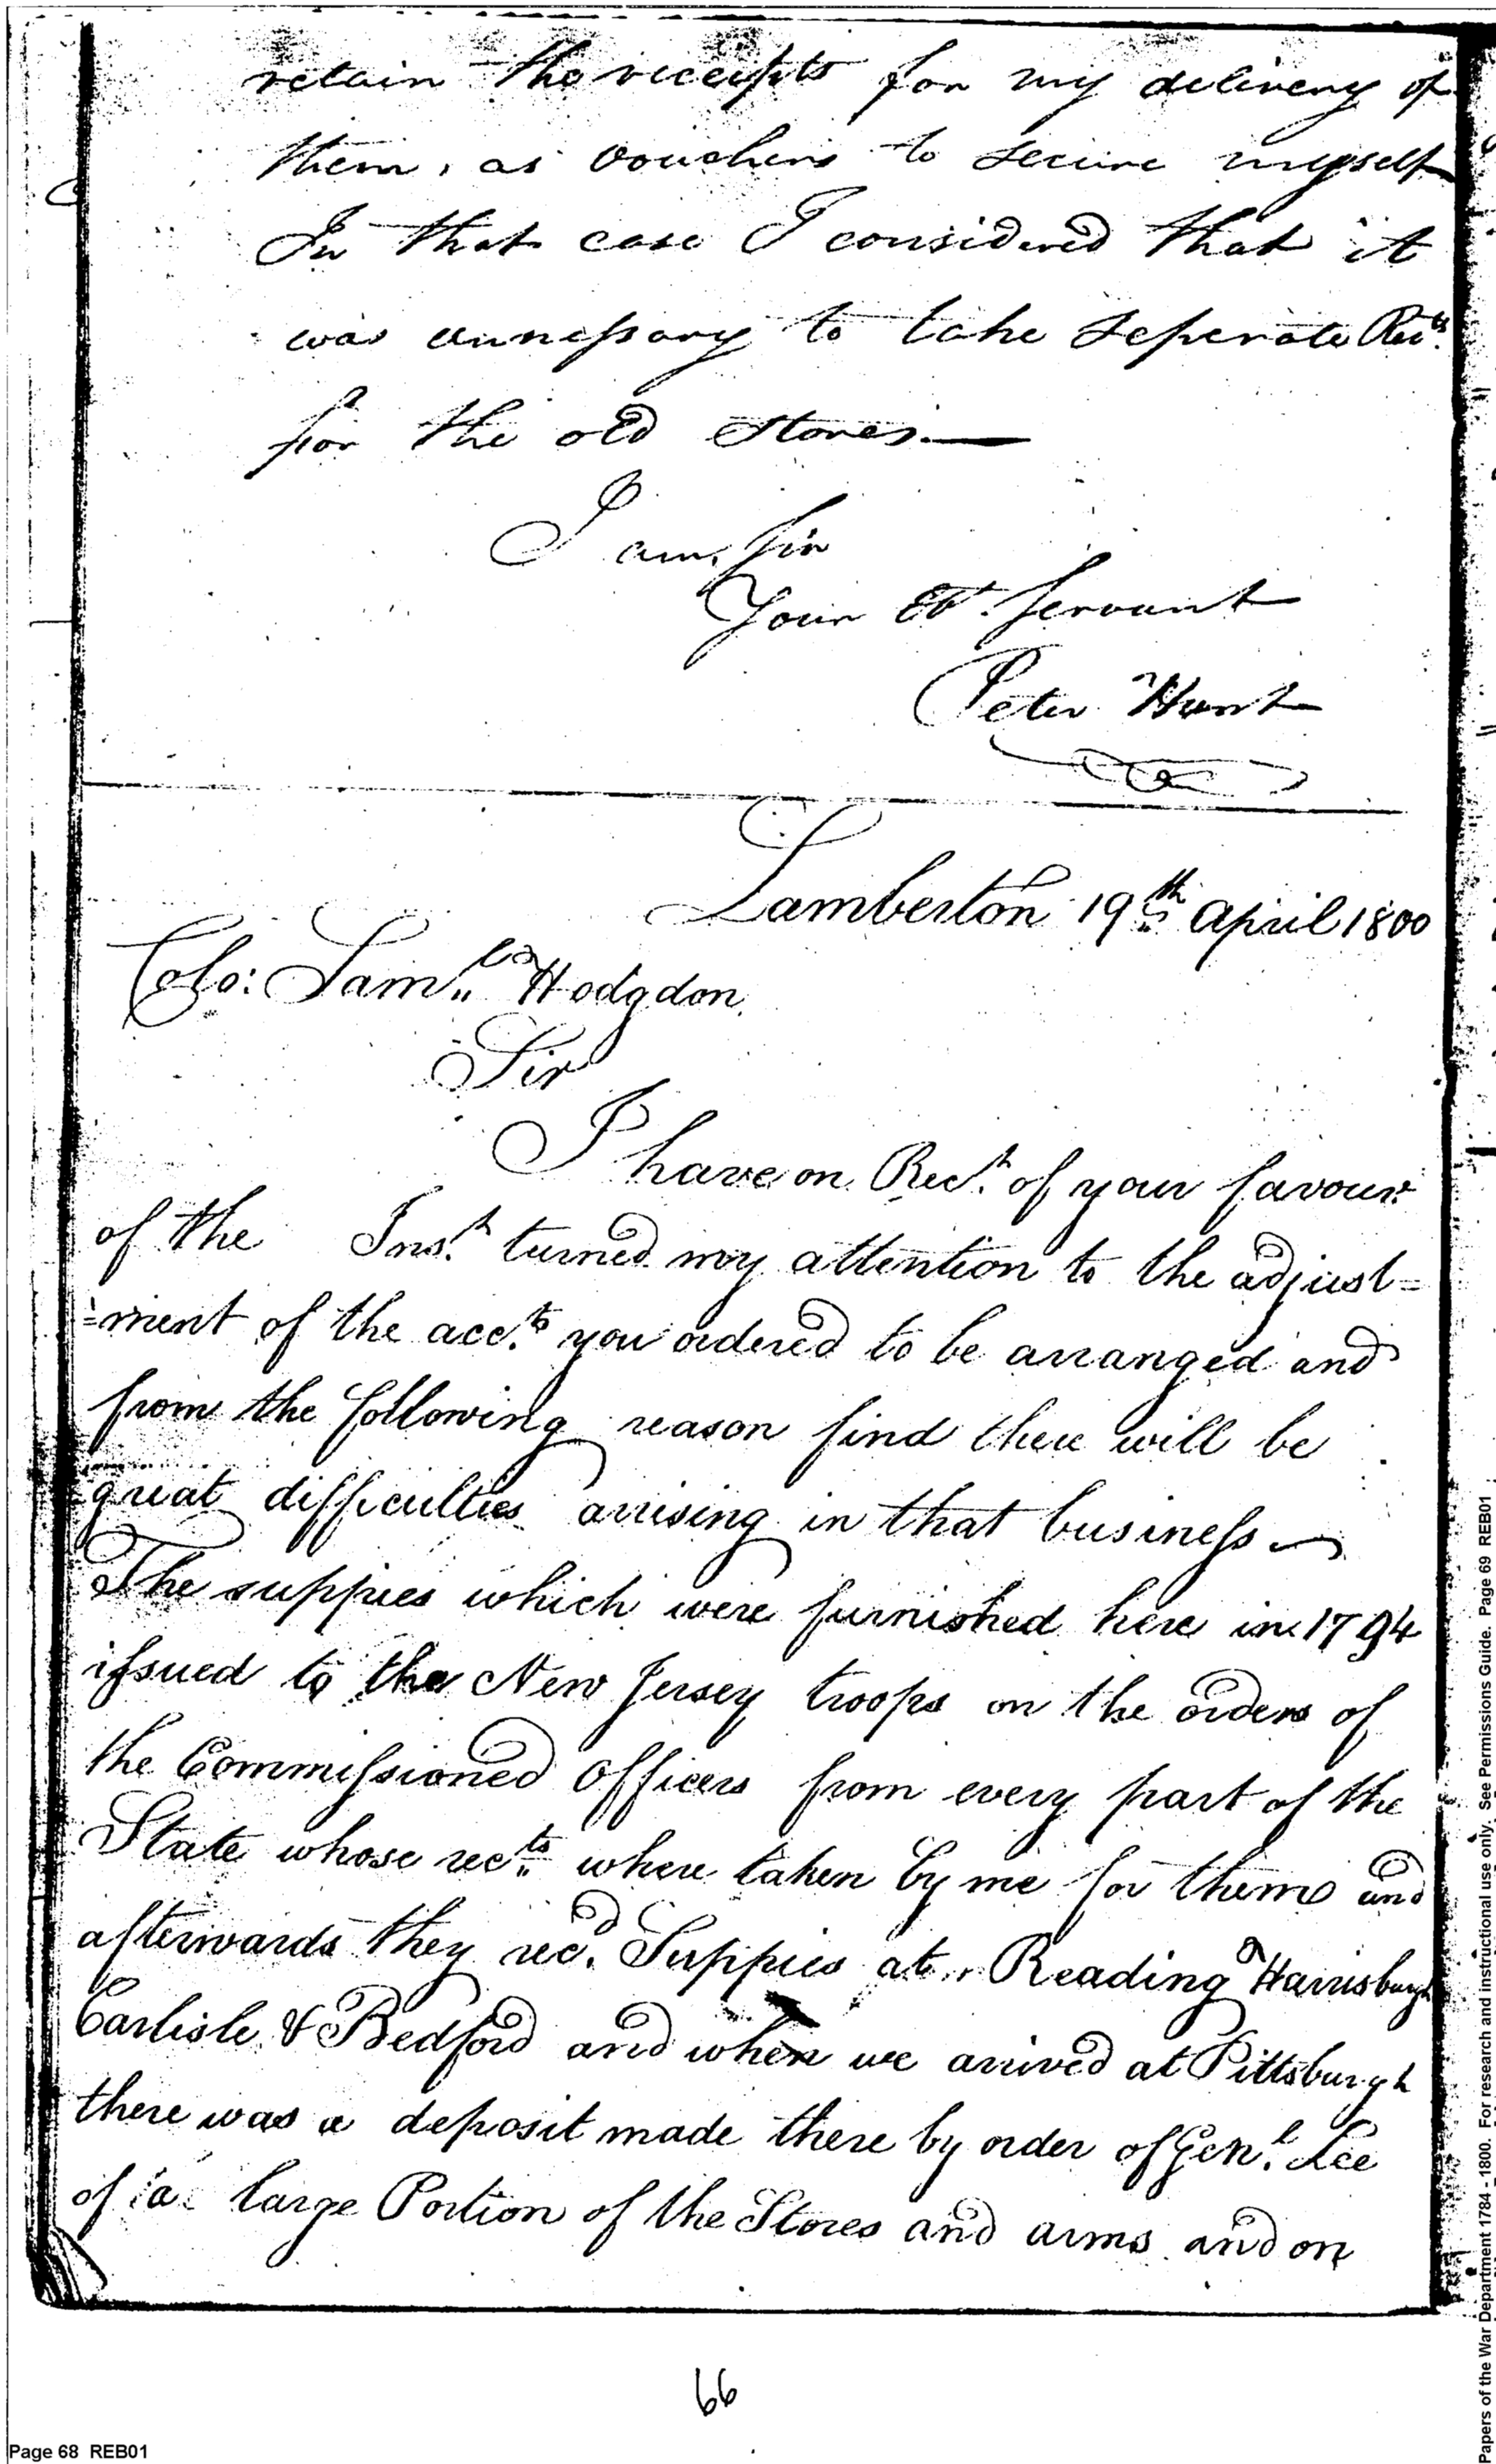 retain the receipts for my delivery of
them, as vouchers to secure myself
In that case I considered that it
was unnessary to take seperate Rects.
for the old stores.—
I am, Sir
Your Obt. Servant
Peter Hunt
Lamberton 19th April 1800
Colo: Saml. Hodgdon,
Sir
I have on Rect. of your favour
of the Inst. turned my attention to the adjust=
=ment of the acc.ts you ordered to be arranged and
from the following reason find there will be
great difficulties arrising in that business
The suppies which were furnished here in 1794
issued to the New Jersey troops on the orders of
the Commissioned Officers from every part of the
State whose rects. where taken by me for them and
afterwards they recd. Suppies at Reading Harrisburgh
Carlisle & Bedford and when we arrived at Pittsburgh
there was a deposit made there by order of Genl. Lee
of a large Portion of the Stores and arms and on
66
Page 68 REB01
Papers of the War Department 1784 - 1800. For research and instructional use only. See Permissions Guide. Page 69 REB01